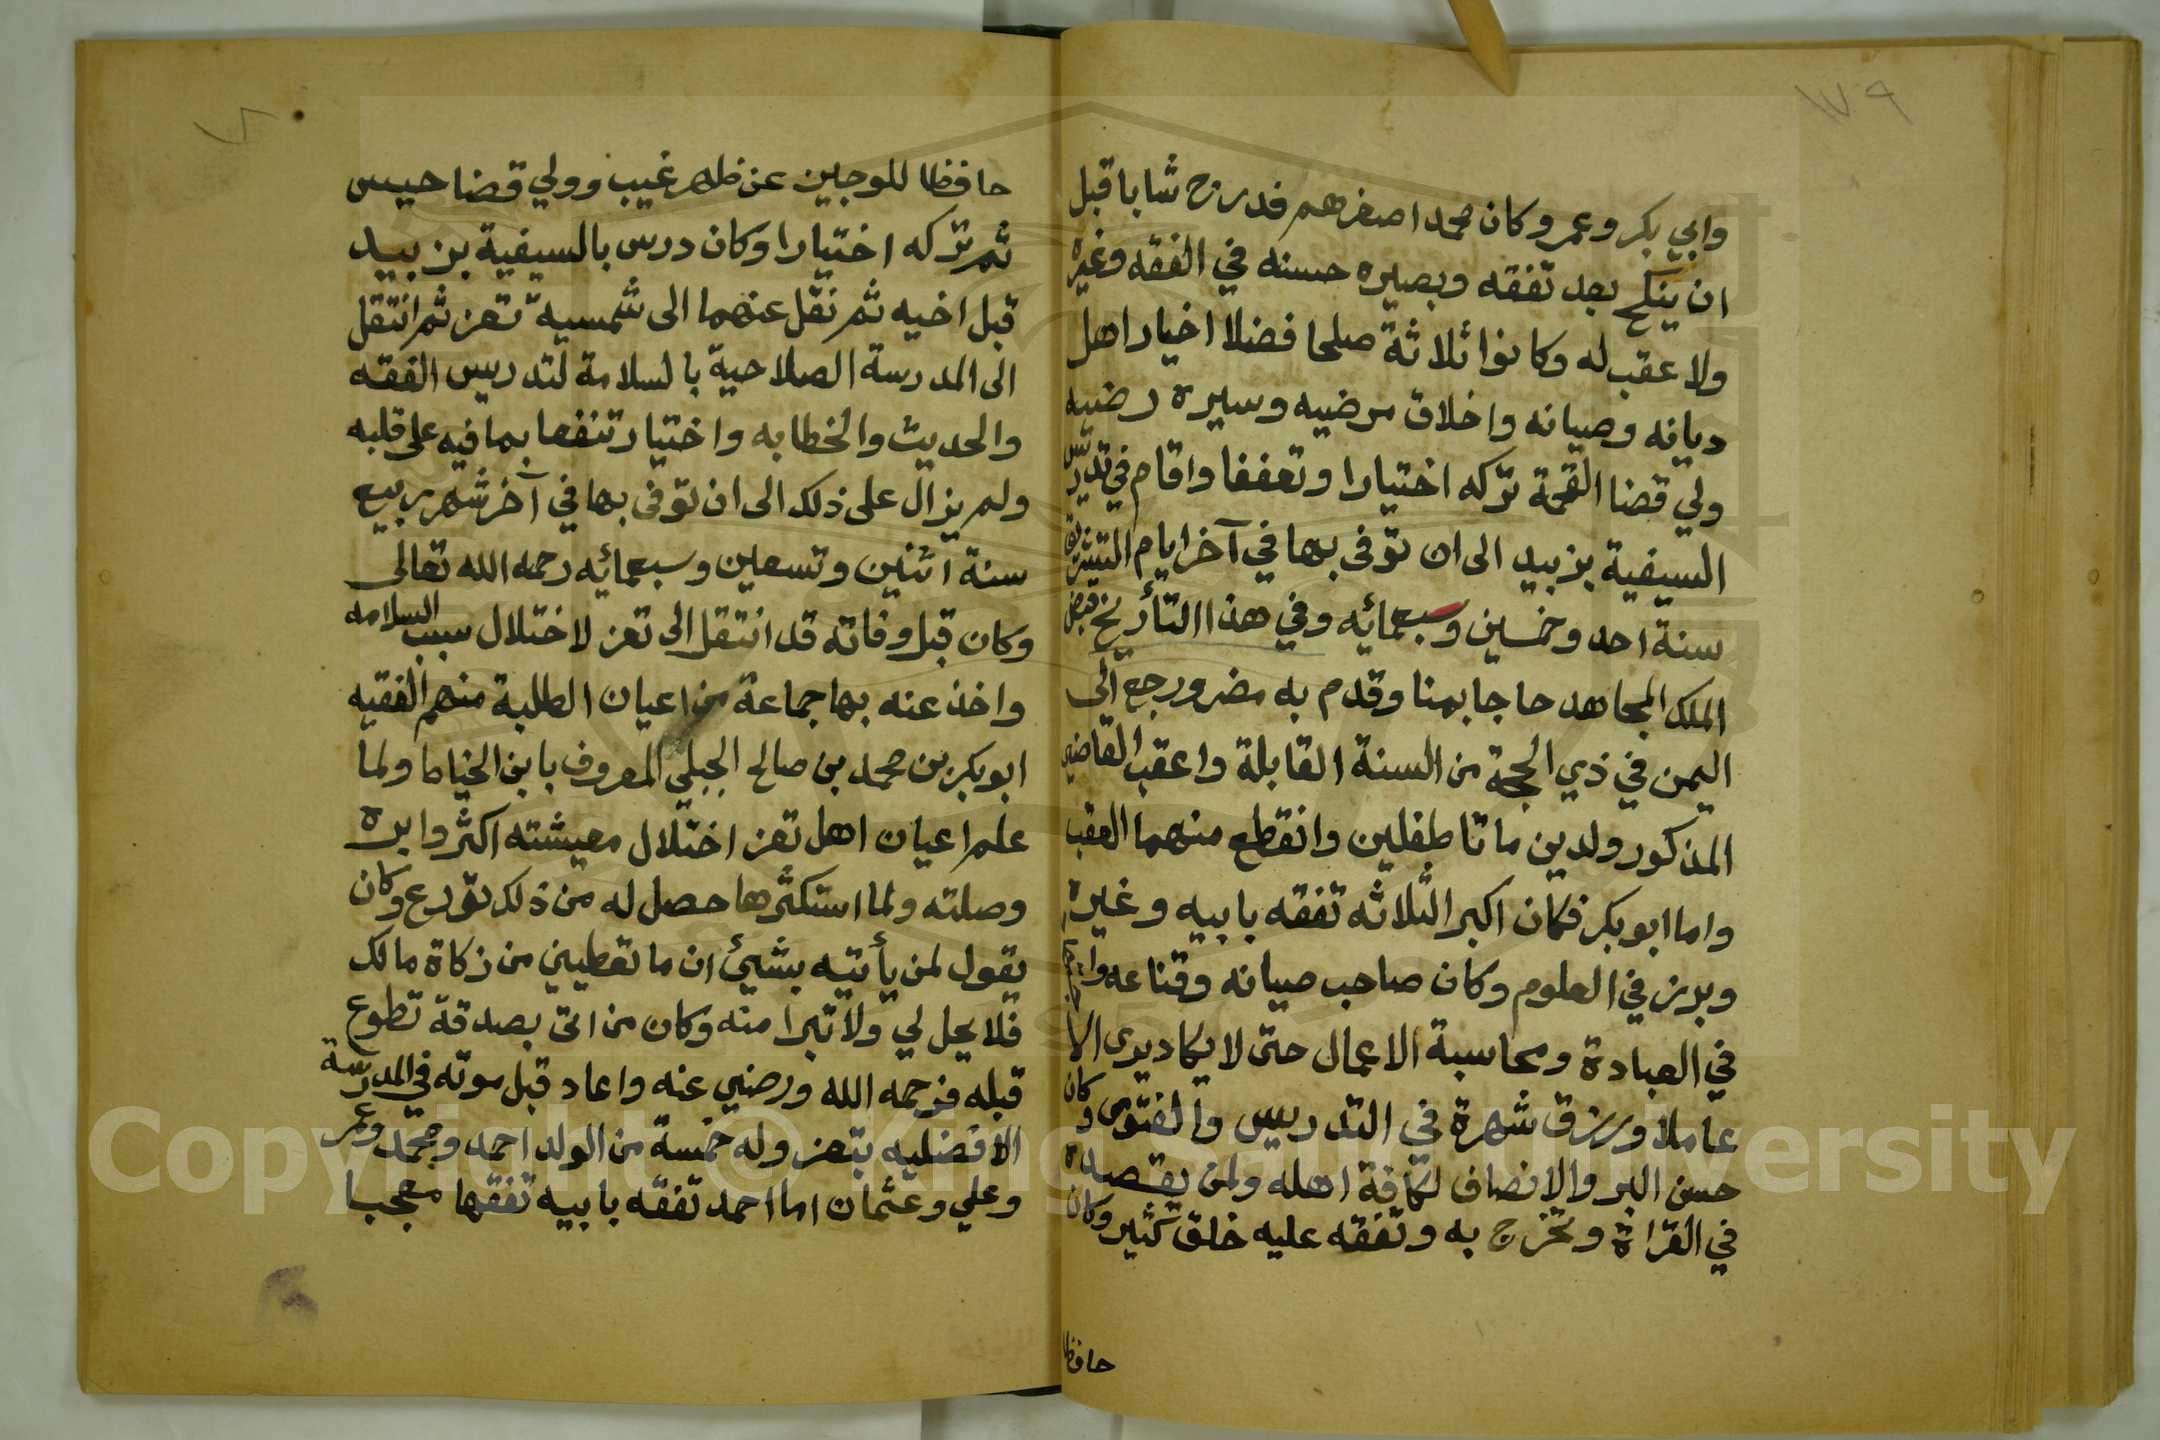 وابي بكر وعمر وكان محمد اصغرهم فدرج شابا قبل
ان ينكح بعد تفقه وبصيره حسنه في الفقه وغيره
ولا عقب له وكانوا ثلاثة صلحا فضلا اخيار اهل
ديانه وصيانه واخلاق مرضيه وسيرة رضيه
ولي قضا القحمة تركه اختيارا وتعففا واقام في تدريس
السيفية بزبيد الى ان توفى بها في آخر ايام التشريق
سنة احد وخمسين وسبعمائه وفي هذا التأريخ قبض
الملك المجاهد حاجا بمنا وقدم به مضر ورجع الى
اليمن في ذي الحجة من السنة القابلة واعقب القاضي
المذكور ولدين ماتا طفلين وانقطع منهما العقب
واما ابو بكر فكان اكبر الثلاثه تفقه بابيه وغيره
وبرز في العلوم وكان صاحب صيانه وقناعه
في العبادة ومحاسبة الاعمال حتى لا يكاد يرى الا
عاملا ورزق شهرة في التدريس والفتوى وكان
حسن البر والانصاف لكافة اهله ولمن يقصده
في القراة وتخرج به وتفقه عليه خلق كثير وكان
حافظا
حافظا للوجين عن ظهر غيب وولي قضا حيس
ثم تركه اختيارا وكان درس بالسيفية بزبيد
قبل اخيه ثم نقل عنهما الى شمسية تعز ثم انتقل
الى المدرسة الصلاحية بالسلامة لتدريس الفقه
والحديث والخطابه واختيار تنفعا بما فيه على قلبه
ولم يزال على ذلك الى ان توفى بها في آخر شهر ربيع
سنة اثنين وتسعين وسبعمائه رحمه الله تعالى
وكان قبل وفاته قد انتقل الى تعز لاختلال سبب السلامه
واخذ عنه بها جماعة من اعيان الطلبة منهم الفقيه
ابو بكر بن محمد بن صالح الجبلي المعروف بابن الخياط ولما
علم اعيان اهل تعز اختلال معيشته اكثروا بره
وصلته ولما استكثرها حصل له من ذلك تورع وكان
يقول لمن يأتيه بشئ ان ما تعطيني من زكاة مالك
فلا يحل لي ولا تبرا منه وكان من اتى بصدقة تطوع
قبله فرحمه الله ورضي عنه واعاد قبل موته في المدرسة
الافضليه بتعز وله خمسة من الولد احمد ومحمد وعمر
وعلي وعثمان اما احمد تفقه بابيه تفقها معجبا
Copyright © King Saud University